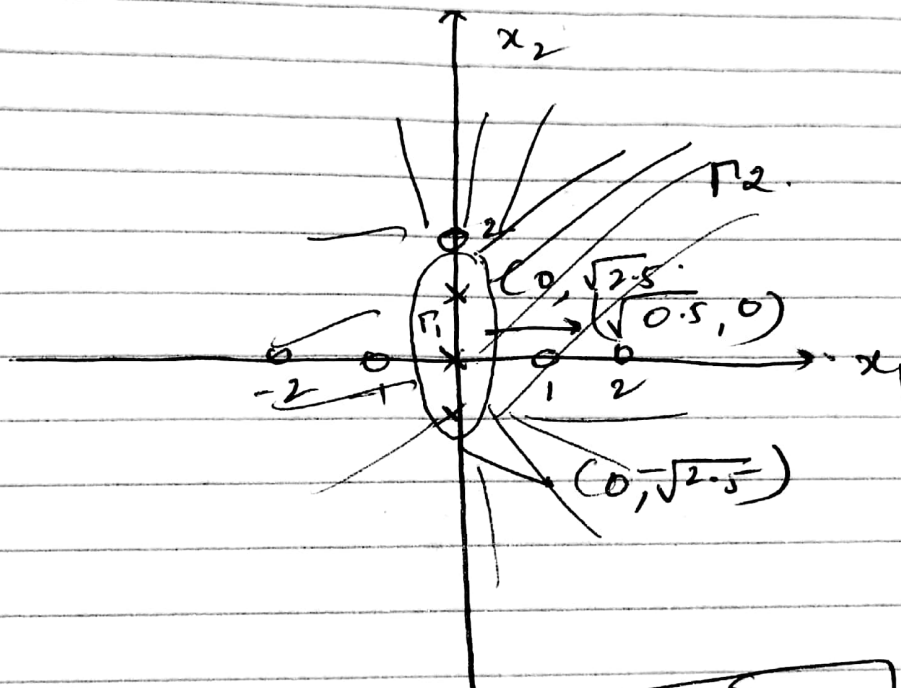 x₂
Γ2.
2
(0, √2.5
Γ₁
(√0.5, 0)
-2 1 1 2 x₁
(0, -√2.5)